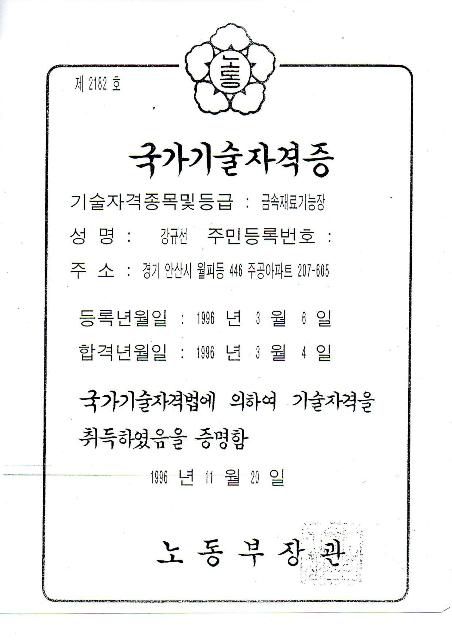 노동
제 2182 호
국가기술자격증
기술자격종목및등급 : 금속재료기능장
성 명 : 강규선 주민등록번호 :
주 소 : 경기 안산시 월피동 446 주공아파트 207-605
등록년월일 : 1996 년 3 월 6 일
합격년월일 : 1996 년 3 월 4 일
국가기술자격법에 의하여 기술자격을
취득하였음을 증명함
1996 년 11 월 20 일
노동부장관